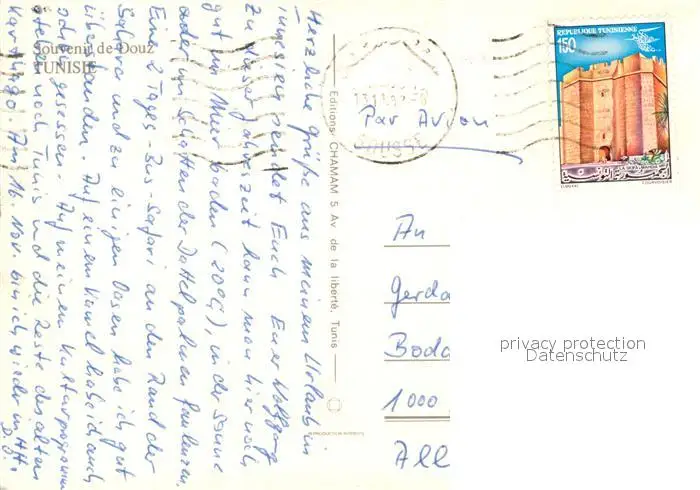 Souvenir de Douz
TUNISIE
Herzliche Grüße aus meinem Urlaub in
Tunesien sendet Euch Euer Wolfgang
Zu dieser Jahreszeit kann man hier noch
gut im Meer baden (20°C), in der Sonne
oder im Schatten der Dattelpalmen faulenzen.
Eine 2 Tages-Bus-Safari an den Rand der
Sahara und zu einigen Oasen habe ich gut
überstanden. Auf einem Kamel habe ich auch
schon gesessen. Auf meinem Kulturprogramm
steht noch Tunis und die Reste des alten
Karthago. Am 16. Nov. bin ich wieder in HH.
Editions: CHAMAM 5 Av de la liberté, Tunis
REPRODUCTION INTERDITE
Par Avion
REPUBLIQUE TUNISIENNE
150
COURVOISIER
An
Gerda
1000
All
privacy protection
Datenschutz